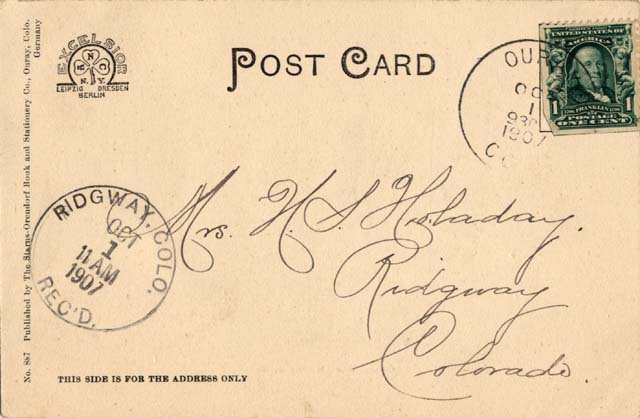 No. 887 Published by The Starns-Orendorf Book and Stationery Co., Ouray, Colo.
Germany
EXCELSIOR
N.Y.
LEIPZIG DRESDEN
BERLIN
POST CARD
OURAY
OC
1
930
1907
CO
UNITED STATES OF
AMERICA
1 FRANKLIN 1
POSTAGE
ONE CENT
RIDGWAY, COLO.
OCT
1
11 AM
1907
REC'D.
Mrs. H. S. Holaday.
Ridgway
Colorado.
THIS SIDE IS FOR THE ADDRESS ONLY